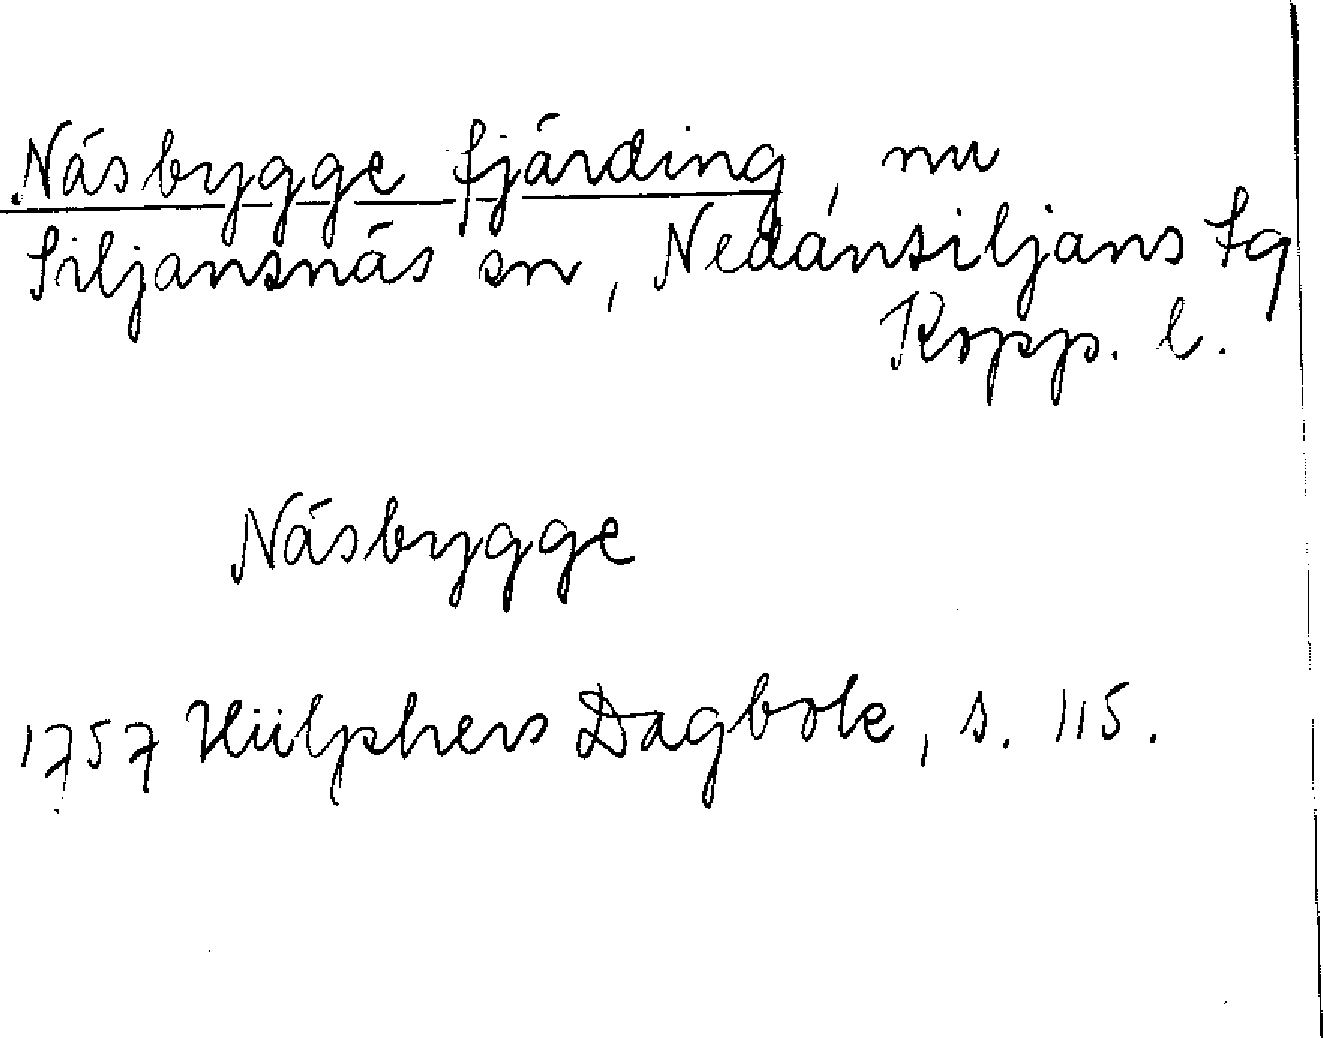 Näsbygge fjärding, nu
Siljansnäs sn, Nedansiljans fg
Kopp. l.
Näsbygge
1757 Hülphers Dagbok, s. 115.